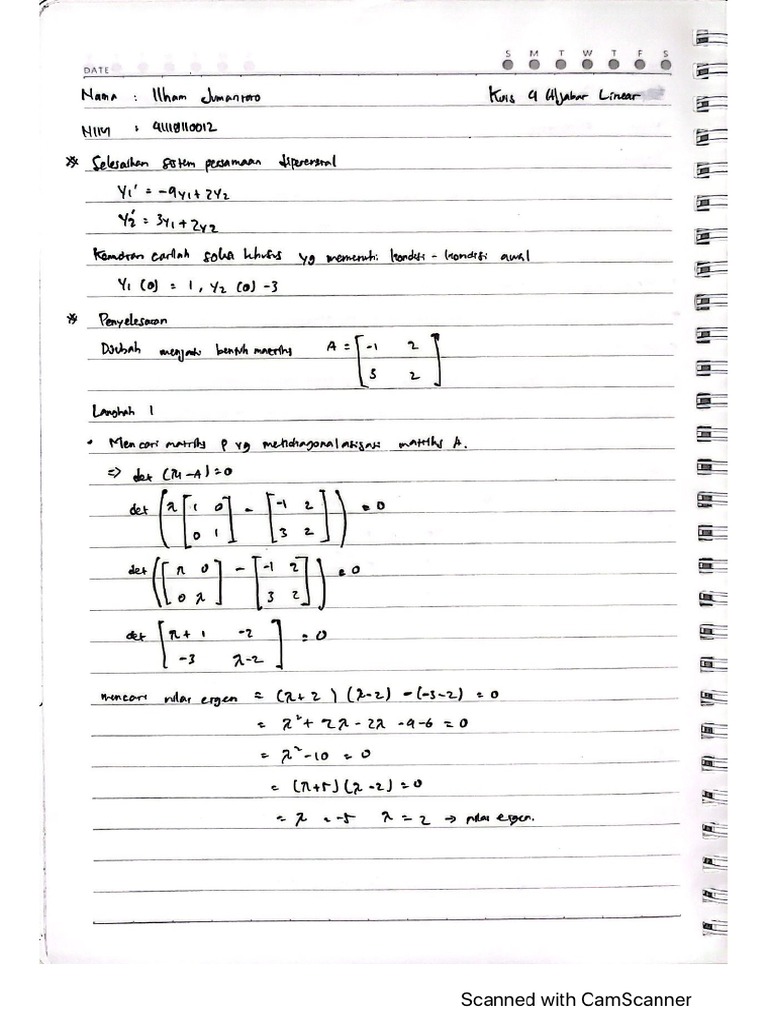 S M T W T F S
DATE
Nama : Ilham Jumantoro Kuis 4 Aljabar Linear
NIM : 41118110012
Selesaikan sistem persamaan diperensial
Y₁' = -9y₁ + 2Y₂
Y₂' = 3y₁ + 2y₂
Kemudian carilah solusi khusus yg memenuhi kondisi - kondisi awal
Y₁ (0) = 1, Y₂ (0) -3
Penyelesaian
Diubah menjadi bentuk matriks A = [-1 2
3 2]
Langkah 1
• Mencari matriks P yg mendiagonalisasi matriks A.
=> det (λI - A) = 0
det (λ [1 0 - [-1 2 = 0
0 1] 3 2])
det ([λ 0 - [-1 2 = 0
0 λ] 3 2])
det [λ + 1 -2 = 0
-3 λ-2]
mencari nilai eigen = (λ+2) (λ-2) - (-3-2) = 0
= λ² + 2λ - 2λ - 4 - 6 = 0
= λ² - 10 = 0
= (λ+5) (λ-2) = 0
= λ = -5 λ = 2 → nilai eigen.
Scanned with CamScanner